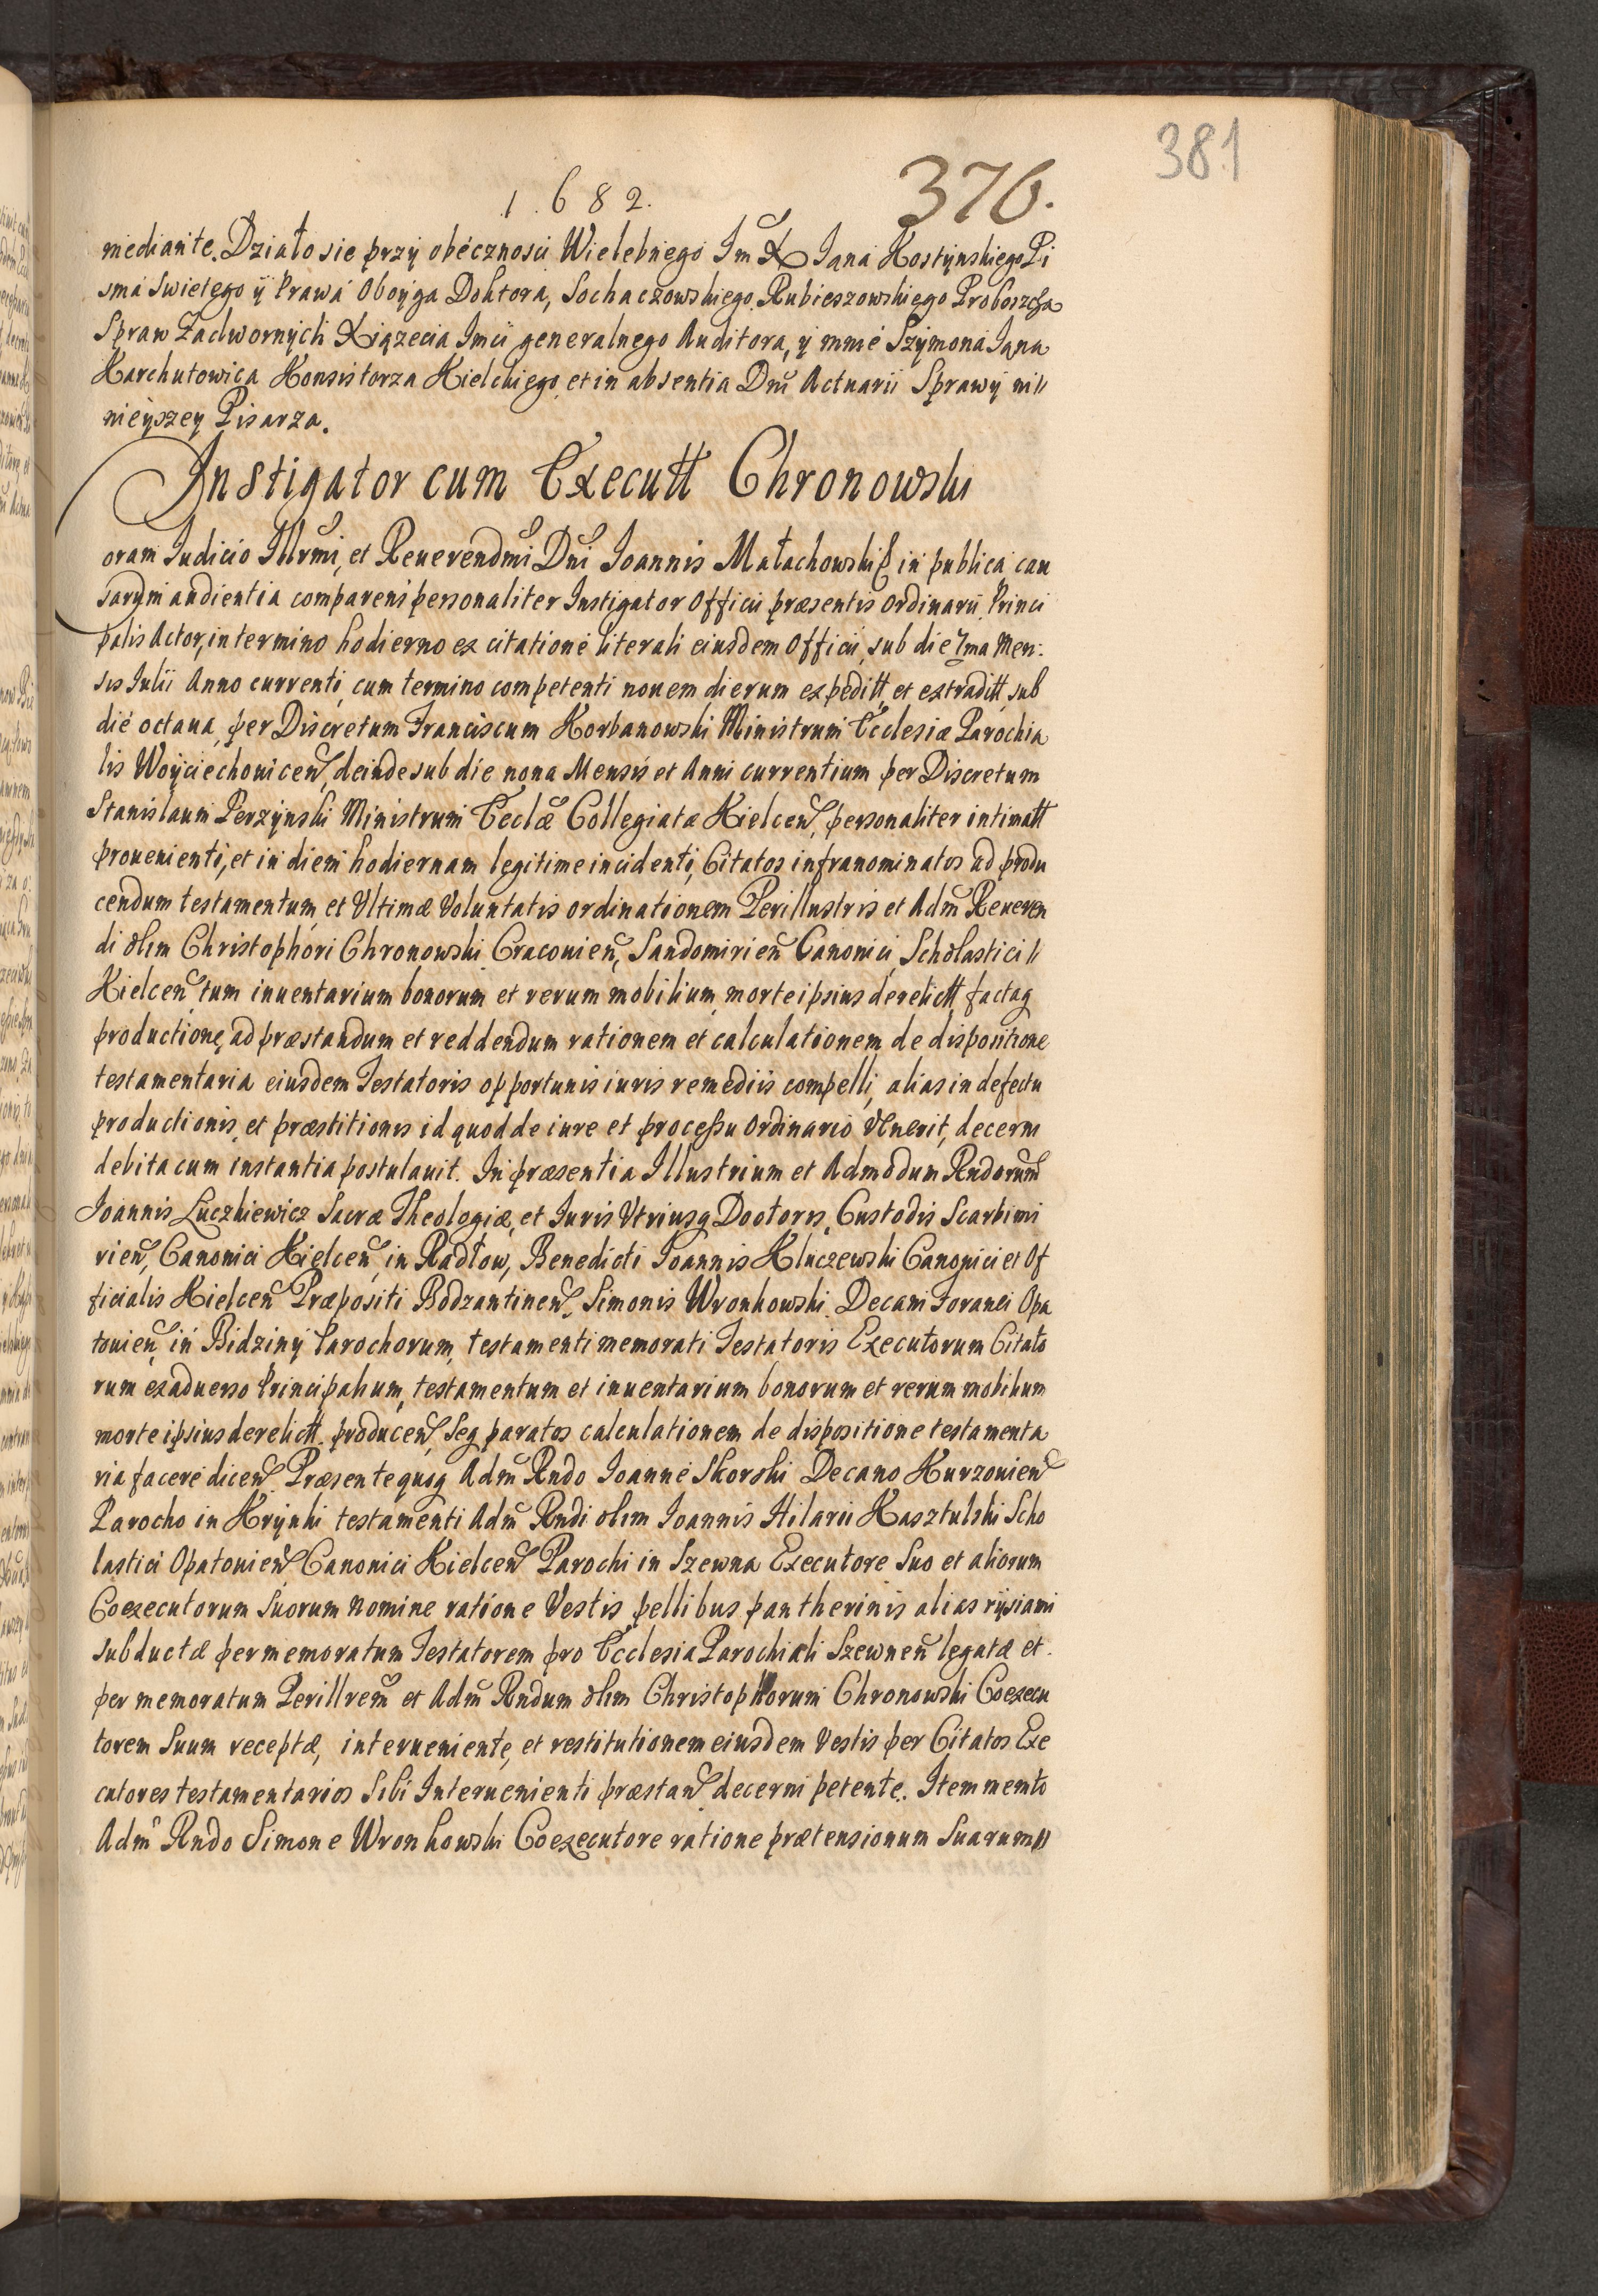 381
1682. 376.
mediante. Działo sie przÿ obecznosci Wielebnego Jm X Jana Kostÿnskiego Pi
sma Swietego ÿ Prawa Oboÿga Doktora, Sochaczowskiego Rubieszowskiego Proboszcza
Spraw Zadwornÿch Xiązecia Jmci generalnego Auditora, ÿ mnie Szÿmona Jana
Karchutowica Konsistorza Kielckiego, et in absentia Dni Actuarii Sprawÿ ni//
nieÿszeÿ Pisarza.
Instigator cum Executt Chronowski
Coram Iudicio Illrmi, et Reuerendmi Dni Ioannis Małachowski E in publica cau
sarum audientia comparens personaliter Instigator Officii præsentis Ordinarii Princi
palis Actor, in termino hodierno ex citatione literali eiusdem Officii, sub die 7ma Men:
sis Iulii Anno currenti, cum termino competenti nouem dierum expeditt, et extraditt, sub
die octaua, per Discretum Franciscum Korbanowski Ministrum Ecclesiæ Parochia
lis Woÿciechouicen, deinde sub die nona Mensis et Anni currentium per Discretum
Stanislaum Perzÿnski Ministrum Ecclæ Collegiatæ Kielcen, personaliter intimatt
prouenienti, et in diem hodiernam legitime incidenti, Citatos infranominatos ad produ
cendum testamentum, et Vltimæ Voluntatis ordinationem Perillustris et Adm Reueren
di olim Christophori Chronowski Cracouien, Sandomirien Canonici, Scholastici//
Kielcen, tum inuentarium bonorum et rerum mobilium, morte ipsius derelictt, factaq
productione, ad præstandum et reddendum rationem et calculationem de dispositione
testamentaria eiusdem Testatoris opportunis iuris remediis compelli, alias in defectu
productionis, et præstitionis id quod de iure et processu Ordinario Venerit, decerni
debita cum instantia postulauit. In præsentia Illustrium et Admodum Rndorum
Ioannis Luczkiewicz Sacræ Theologiæ, et Iuris Vtriusq Doctoris, Custodis Scarbimi
rien, Canonici Kielcen, in Radłow, Benedicti Ioannis Kluczewski Canonici et Of
ficialis Kielcen Præpositi Bodzantinen, Simonis Wronkowski Decani Foranei Opa
touien, in Bidzinÿ Parochorum, testamenti memorati Testatoris Executorum Citato
rum ex aduerso Principalium, testamentum et inuentarium bonorum et rerum mobilium
morte ipsius derelictt producen, Seq paratos calculationem de dispositione testamenta
ria facere dicen. Præsente quoq Adm Rndo Ioanne Skorski Decano Kurzouien
Parocho in Krÿnki testamenti Adm Rndi olim Ioannis Hilarii Kasztulski Scho
lastici Opatouien, Canonici Kielcen Parochi in Szewna Executore Suo et aliorum
Coexecutorum Suorum nomine ratione Vestis pellibus pantherinis alias rÿsiami
subductæ per memoratum Testatorem pro Ecclesia Parochiali Szewnen legatæ et
per memoratum Perillrem et Adm Rndum olim Christophorum Chronowski Coexecu
torem Suum receptæ, interueniente, et restitutionem eiusdem Vestis per Citatos Exe
cutores testamentarios Sibi Interuenienti præstan decerni petente. Item memto
Adm Rndo Simone Wronkowski Coexecutore ratione prætensionum Suarum//